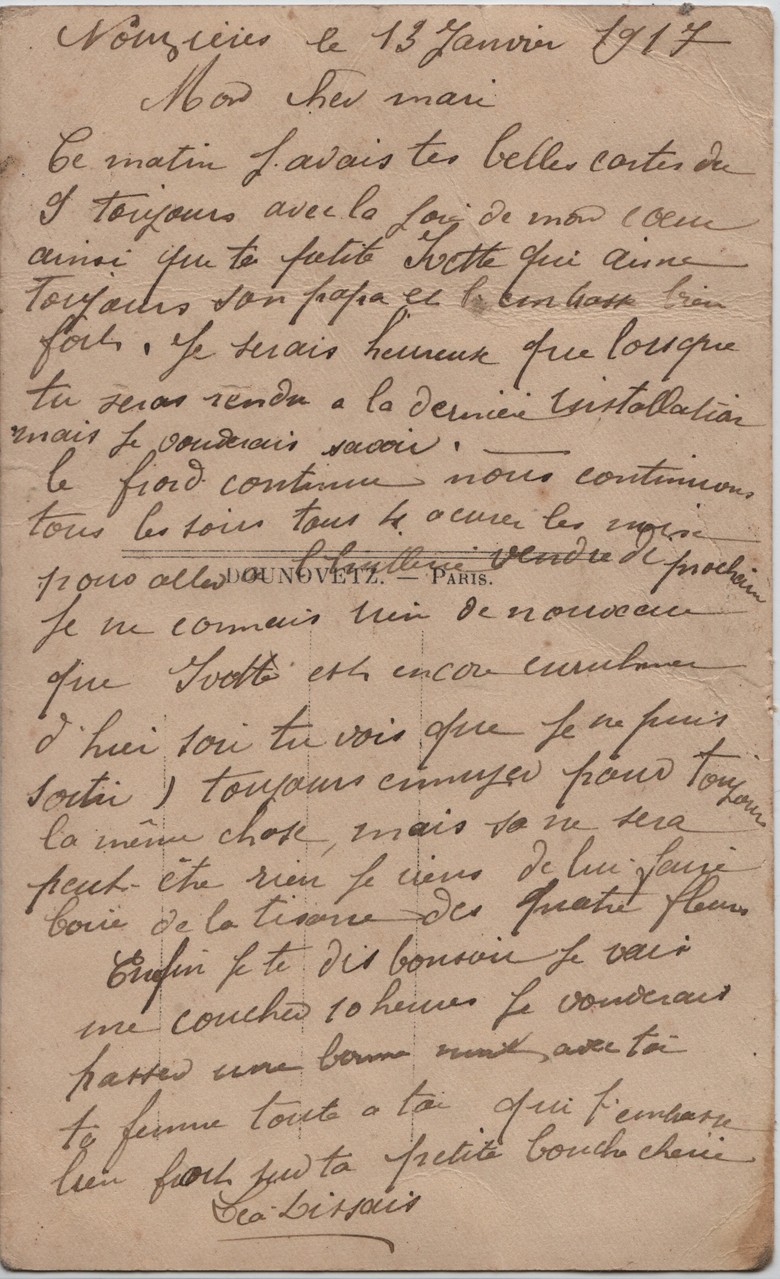 le 13 Janvier 1917
Mon cher mari
Ce matin j'avais tes belles cartes du
9 toujours avec la joie de mon coeur
ainsi que ta petite Ivette qui aime
toujours son papa et l'embrasse bien
fort. Je serais heureuse que lorsque
tu seras rendu a la dernière installation
mais je vouderais savoir.
le froid continue nous continuons
tous les soirs tous les
pour aller a vendredi prochain
DOUNOVETZ. — PARIS.
Je ne connais rien de nouveau
que Ivette est encore enrhumer
d'hier soir tu vois que je ne puis
sortir) toujours ennuyer pour toujours
la même chose, mais sa ne sera
peut-être rien je viens de lui faire
boire de la tisane des quatre fleurs
Enfin je te dis bonsoir je vais
me coucher 10 heures je vouderais
passer une bonne nuit avec toi
ta femme toute a toi qui t'embrasse
bien fort sur ta petite bouche cherie
Léa Dissais